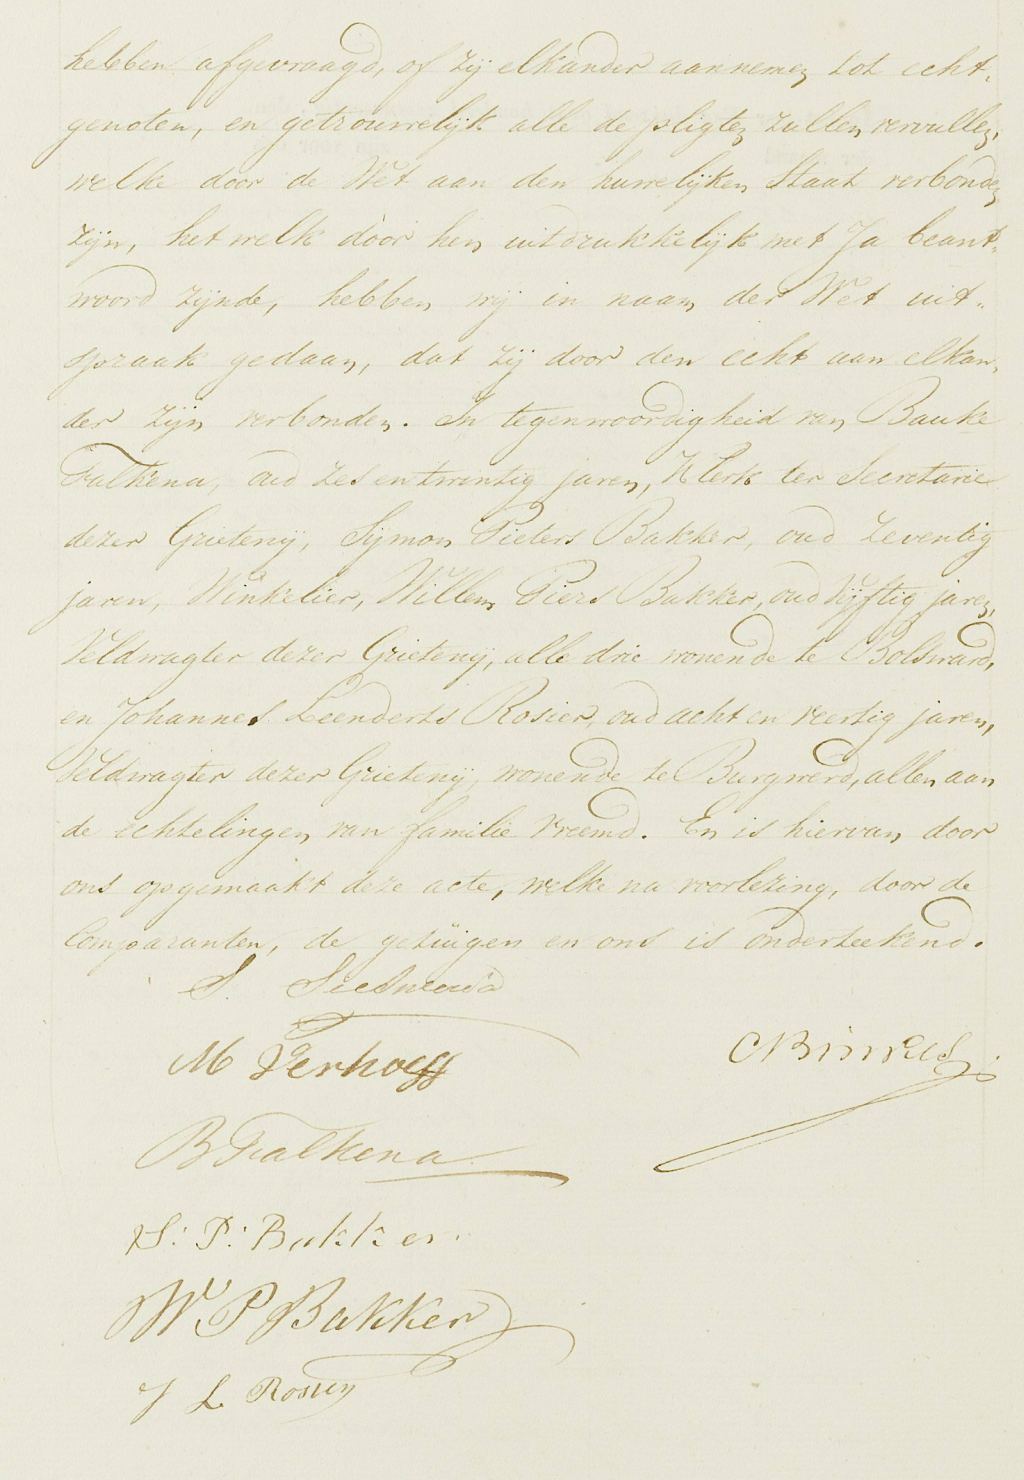 hebben afgevraagd, of zij elkander aannemen tot echt„
genoten, en getrouwelijk alle de pligten zullen vervullen,
welke door de Wet aan den huwelijken Staat verbonden
zijn, het welk door hen uitdrukkelijk met Ja beant„
woord zijnde, hebben wij in naam der Wet uit„
spraak gedaan, dat zij door den echt aan elkan„
der zijn verbonden. In tegenwoordigheid van Bauke
Falkena, oud zes en twintig jaren, Klerk ter Secretarie
dezer Grietenij, Sijmon Pieters Bakker, oud zeventig
jaren, Winkelier, Willem Piers Bakker, oud vijftig jaren,
Veldwagter dezer Grietenij, alle drie wonende te Bolsward,
en Johannes Leenderts Rosier, oud acht en veertig jaren,
Veldwagter dezer Grietenij, wonende te Burgwerd, allen aan
de echtelingen van familie vreemd. En is hiervan door
ons opgemaakt deze acte, welke na voorlezing, door de
Comparanten, de getuigen en ons is onderteekend.
S.
M Verhoeff
CBinkes
B Falkena
S: P: Bakker.
W P Bakker
J L Rosier